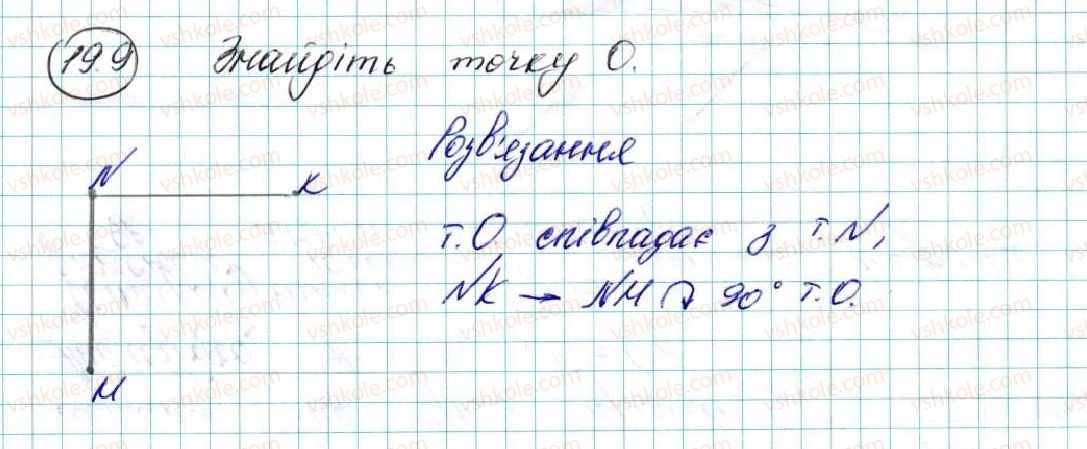 19.9 Знайдіть точку О.
Розв'язання
N K
т.О. співпадає з т.N,
NK → NM ↷ 90° т.О.
M
vshkole.com